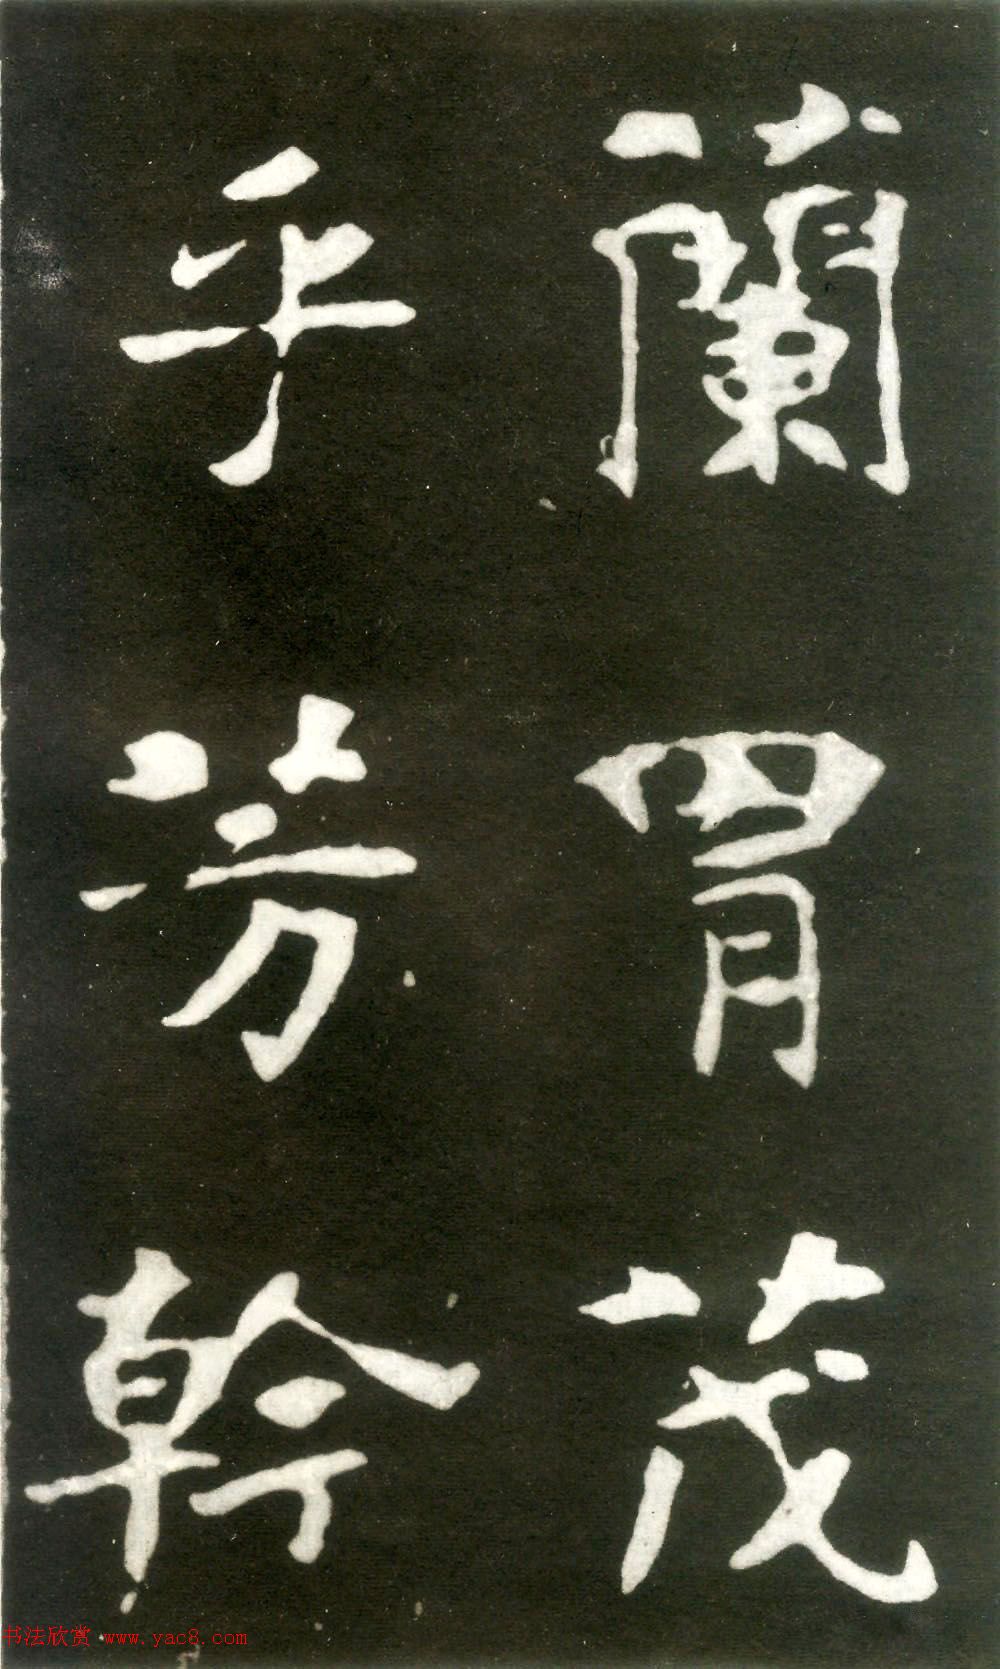 蘭胄茂
乎芳幹
书法欣赏 www.yac8.com